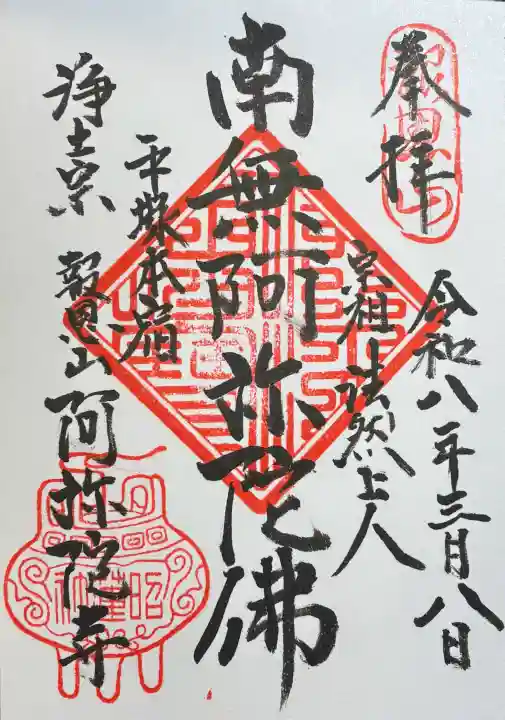 奉拝
報恩山
令和八年三月八日
宗祖法然上人
南無阿弥陀佛
平塚本宿
浄土宗 報恩山 阿弥陀寺